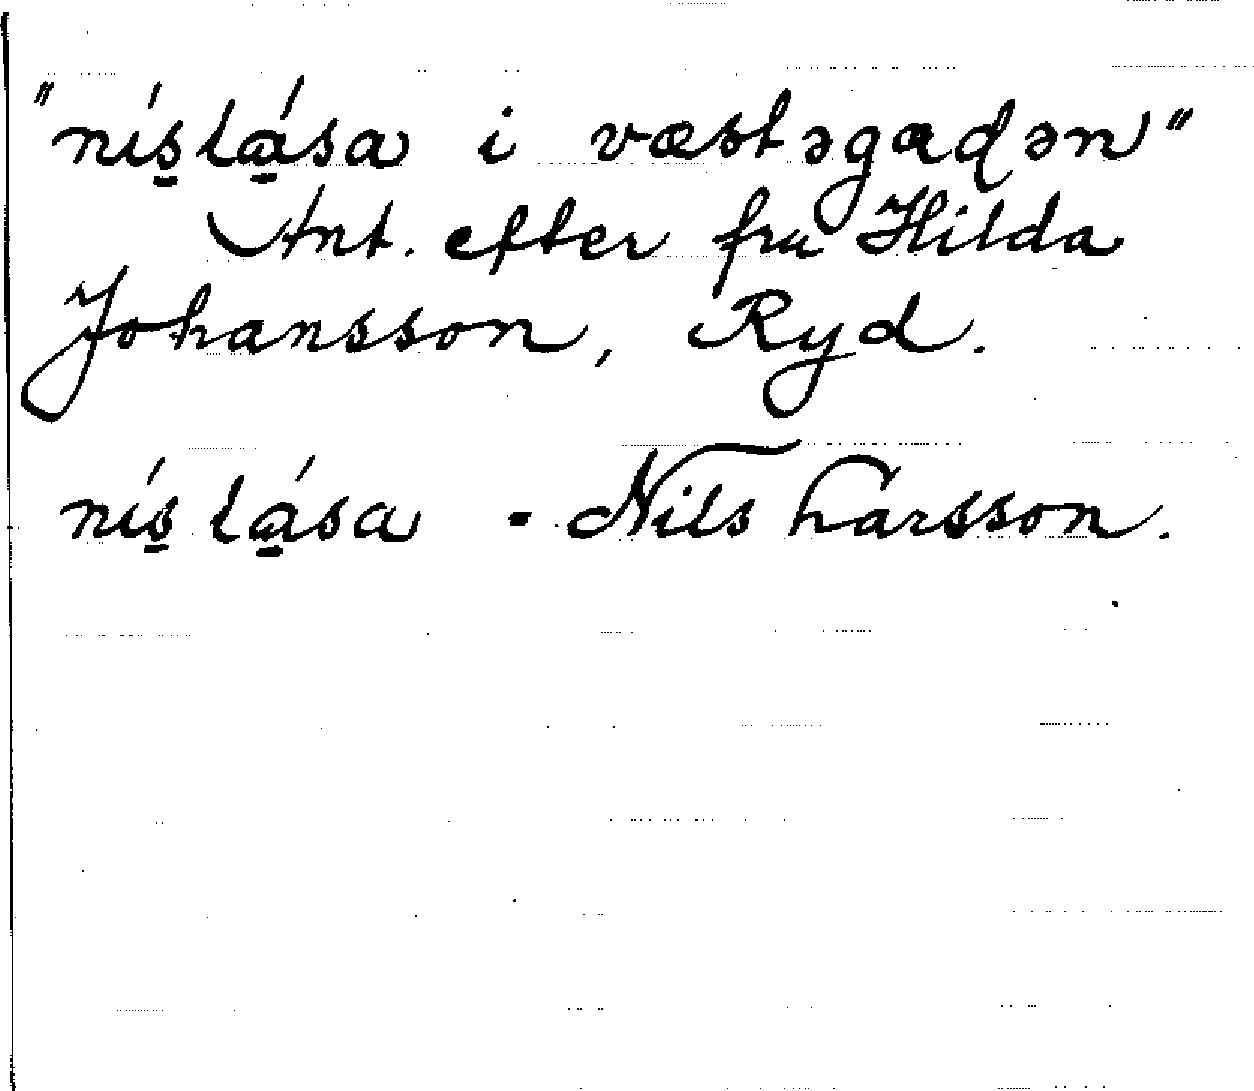 "nís̱lá̱sa i væstəgaɖən"
Ant. efter fru Hilda
Johansson, Ryd.
nís̱ lá̱sa - Nils Larsson.